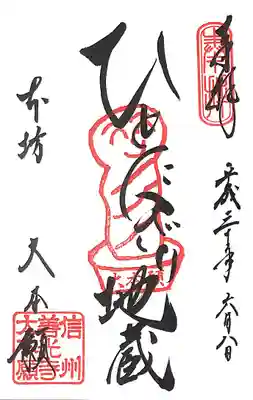 奉拝
平成三十年六月八日
ひとにぎり地蔵
本坊 大本願
信州
善光寺
大本願